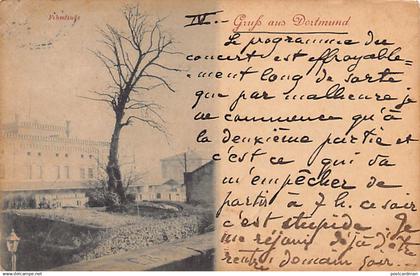 Vehmlinde
IV
Gruß aus Dortmund
Le programme du
concert est effroyable-
ment long de sorte
que par malheur je
ne commence qu'à
la deuxième partie et
c'est ce qui va
m'empêcher de
partir à 7 h. ce soir
c'est stupide Je
me réjouis déjà d'être
demain soir
postcardman